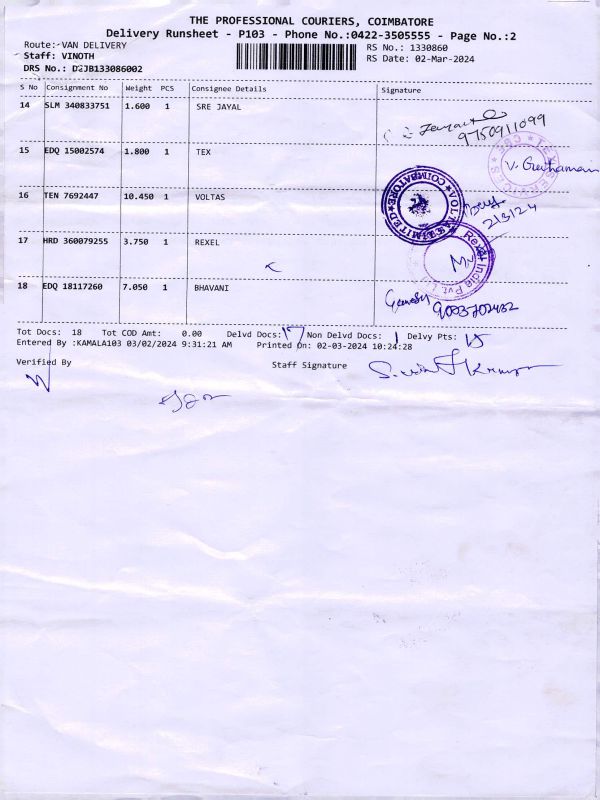 THE PROFESSIONAL COURIERS, COIMBATORE
Delivery Runsheet - P103 - Phone No.:0422-3505555 - Page No.:2
Route:- VAN DELIVERY RS No.: 1330860
Staff: VINOTH RS Date: 02-Mar-2024
DRS No.: D2JB133086002
S No Consignment No Weight PCS Consignee Details Signature
14 SLM 340833751 1.600 1 SRE JAYAL
9750911099
15 EDQ 15002574 1.800 1 TEX
16 TEN 7692447 10.450 1 VOLTAS
VOLTAS LIMITED COIMBATORE
2/3/24
17 HRD 360079255 3.750 1 REXEL
Rexel India Pvt. Ltd
18 EDQ 18117260 7.050 1 BHAVANI
Ganesh
9003702432
Tot Docs: 18 Tot COD Amt: 0.00 Delvd Docs: 17 Non Delvd Docs: 1 Delvy Pts: 15
Entered By :KAMALA103 03/02/2024 9:31:21 AM Printed On: 02-03-2024 10:24:28
Verified By Staff Signature